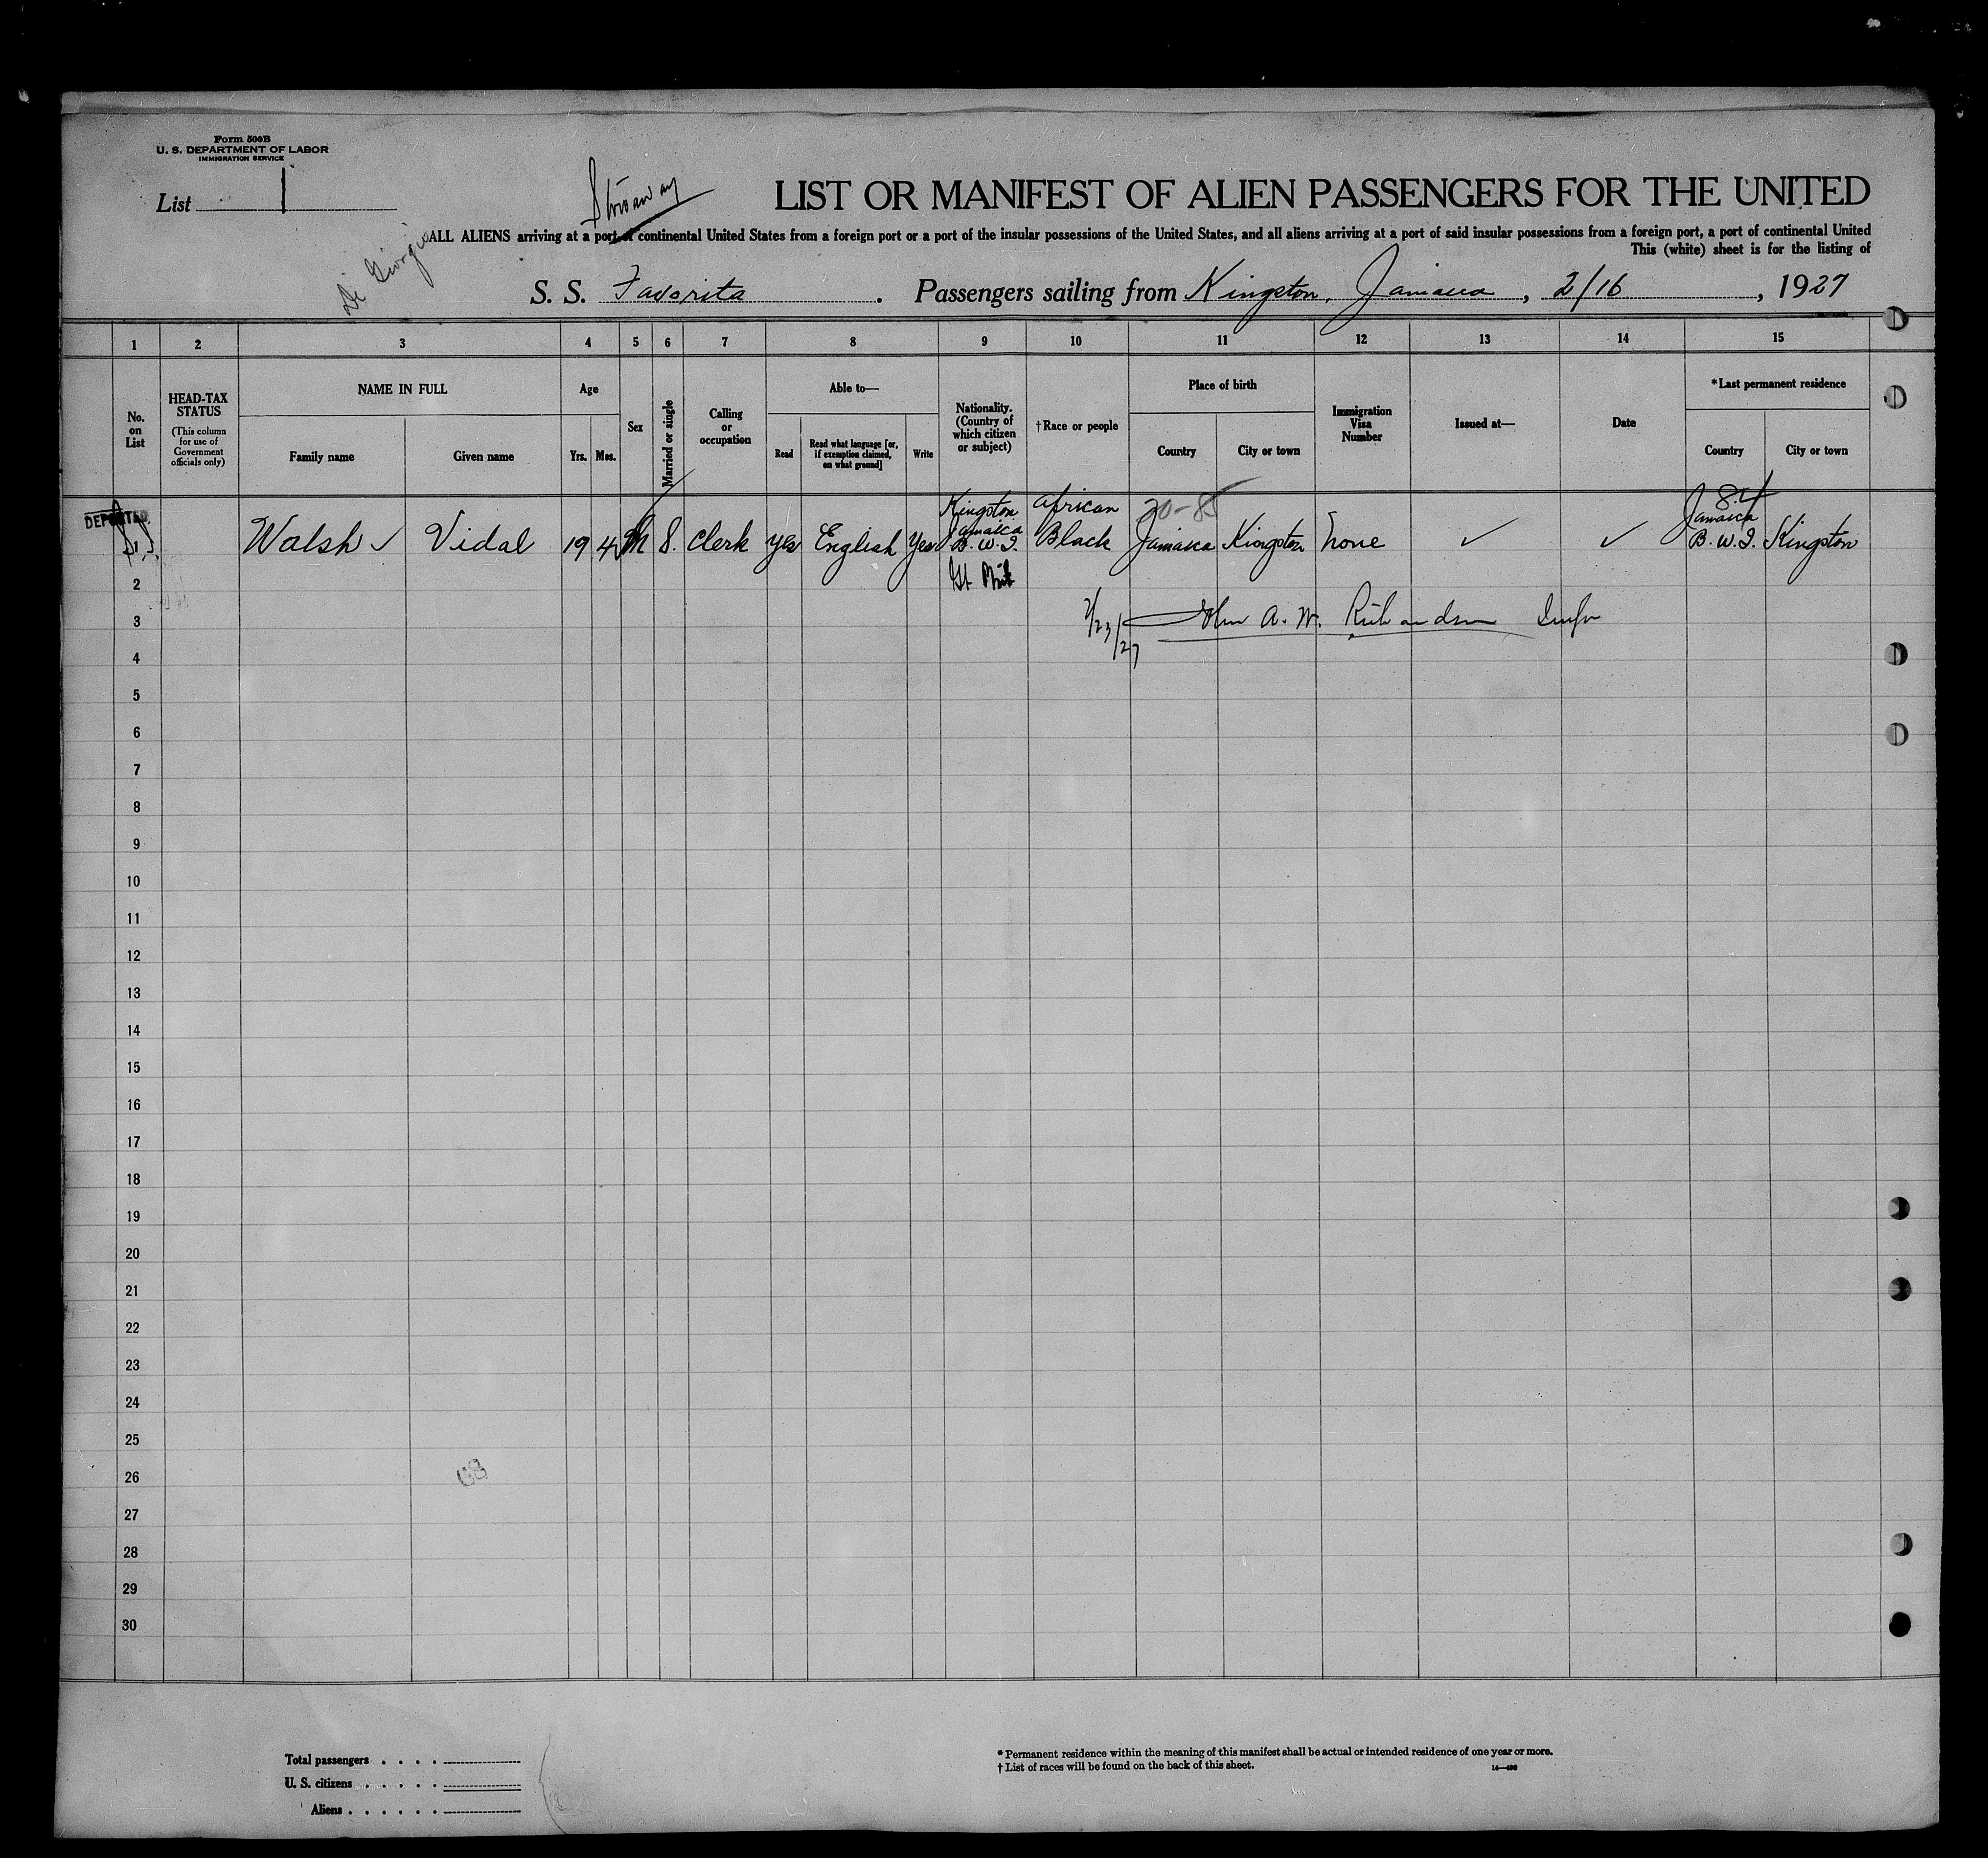 Form 500B
U. S. DEPARTMENT OF LABOR
IMMIGRATION SERVICE
List 1
Stowaway
Di Giorgio
LIST OR MANIFEST OF ALIEN PASSENGERS FOR THE UNITED
ALL ALIENS arriving at a port of continental United States from a foreign port or a port of the insular possessions of the United States, and all aliens arriving at a port of said insular possessions from a foreign port, a port of continental United
This (white) sheet is for the listing of
S. S. Favorita . Passengers sailing from Kingston, Jamaica , 2/16 , 1927
1 2 3 4 5 6 7 8 9 10 11 12 13 14 15
No. on List
HEAD-TAX STATUS (This column for use of Government officials only)
NAME IN FULL
Family name Given name
Age
Yrs. Mos.
Sex
Married or single
Calling or occupation
Able to—
Read Read what language [or, if exemption claimed, on what ground] Write
Nationality. (Country of which citizen or subject)
†Race or people
Place of birth
Country City or town
Immigration Visa Number
Issued at—
Date
*Last permanent residence
Country City or town
DEPORTED
Walsh ✓ Vidal 19 4 M S. Clerk yes English Yes Kingston Jamaica B. W. I. African Black 20-85 Jamaica Kingston None ✓ ✓ 84 Jamaica B. W. I. Kingston
2
Gt Brit
3
2/23/27 John A. W. Richardson
4
5
6
7
8
9
10
11
12
13
14
15
16
17
18
19
20
21
22
23
24
25
26
27
28
29
30
Total passengers . . . .
U. S. citizens . . . . .
Aliens . . . . . .
* Permanent residence within the meaning of this manifest shall be actual or intended residence of one year or more.
† List of races will be found on the back of this sheet.